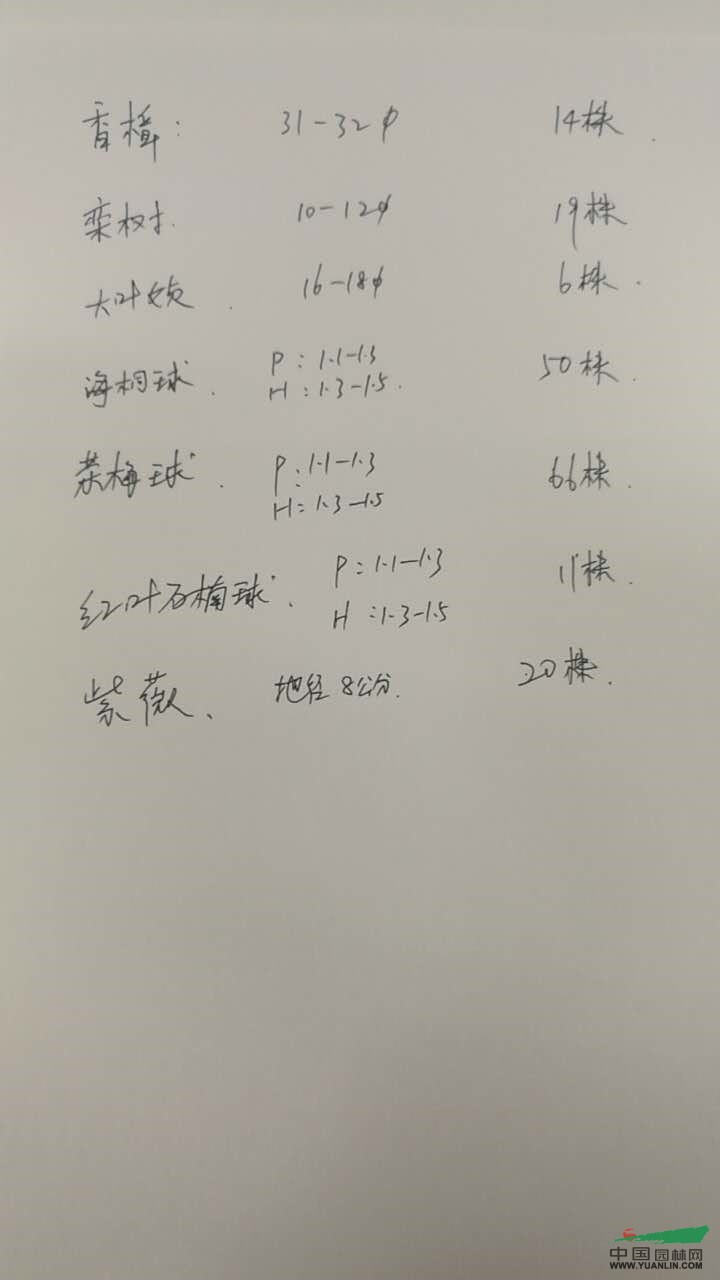 香樟: 31-32φ 14株.
栾树. 10-12φ 19株
大叶女贞. 16-18φ 6株.
海桐球. P:1.1-1.3 50株.
H:1.3-1.5.
茶梅球. P:1.1-1.3 66株.
H:1.3-1.5
红叶石楠球. P:1.1-1.3 11株.
H:1.3-1.5
紫薇、 地径8公分. 20株.
中国园林网
WWW.YUANLIN.COM